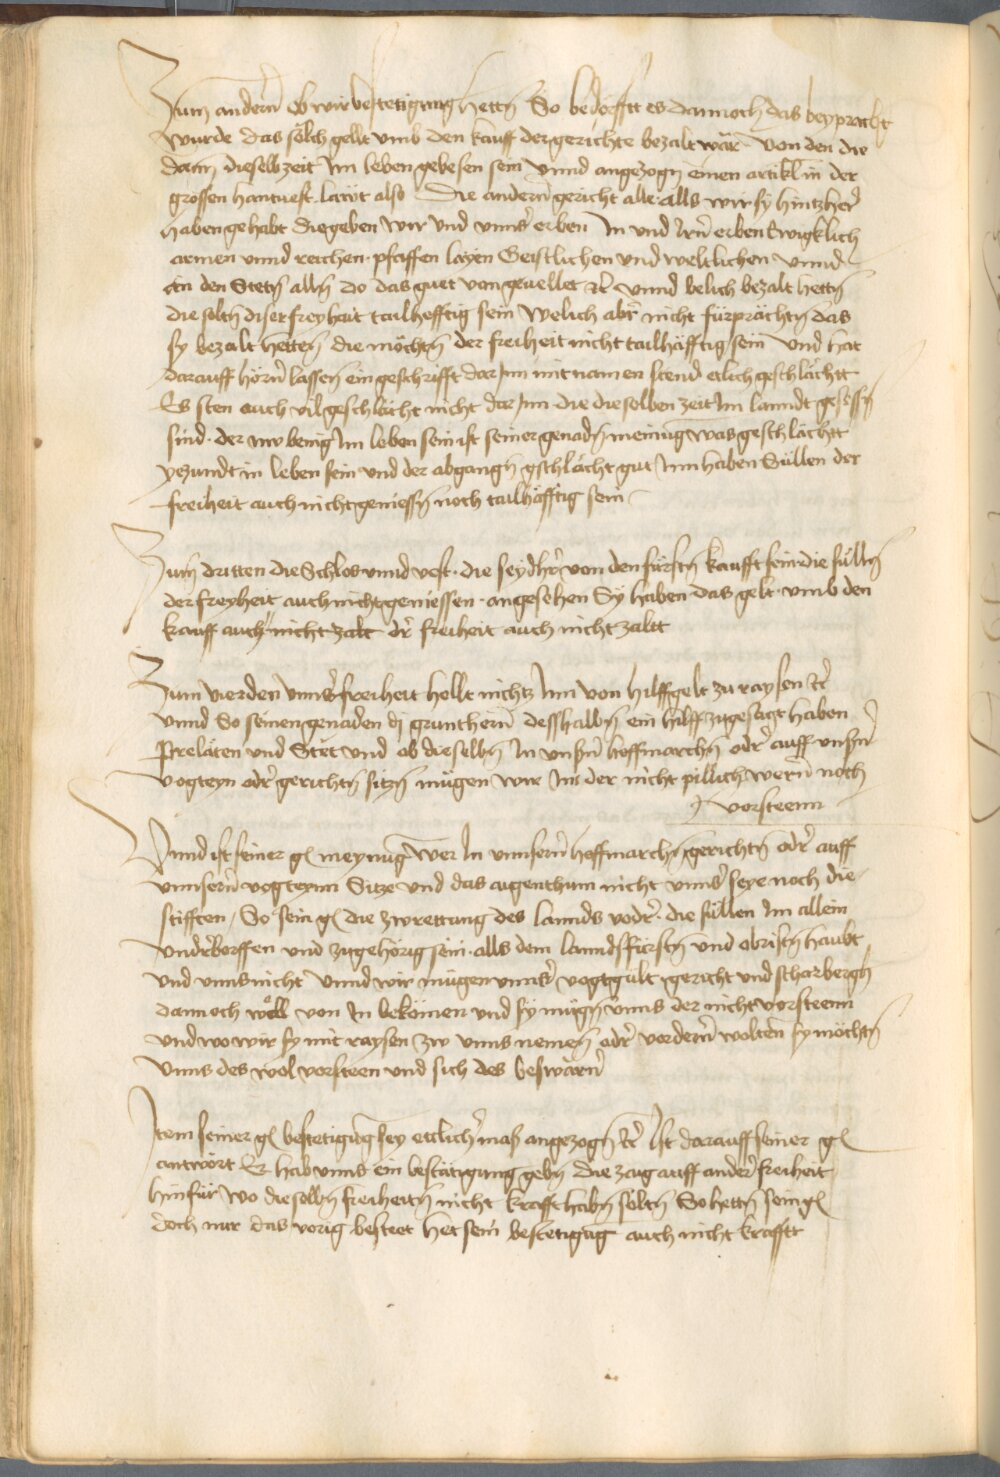 Zum andern ob wir bestetigung hettn So bedörfftt es dannoch das beypracht
wurde das sölch gellt vmb den kauff der gerichte bezalt wär von den die
dann dieselb zeit Im leben gebesen sein vnnd angezogn einen artikl in der
grossen hantuest lautt also Die andern gericht alle alls wir sy hintzher
haben gehabt die geben wir vnd vnnser erben In vnd Irn erben Ewigklich
armen vnnd reichen pfaffen layen Geistlichen vnd weltlichen vnnd
an den Stetn alln do das guet von geuellet etc vnnd welich bezalt hettn
die soltn diser freyhait tailhefftig sein Welich aber nicht fürprächtn das
sy bezalt hetten die möchtn der freiheit nicht tailhäfftig sein vnd hat
darauff hörn lassen ein geschrifft dar Inn mit namen stend etlich geschlächtt
Es sten auch vil geschlächt nicht dar Inn die dieselben zeit Im lanndt gesessn
sind der nw benig Im leben sein ist seiner genadn meinung was geschlächtt
yezundt in leben sein vnd der abgangn gschlächt gut Inn haben Süllen der
freiheit auch nicht geniessn noch tailhäfftig sein
Zum dritten die Schlos vnnd vest die seydher von den fürstn kaufft sein die sülln
der freyheit auch nicht geniessen angesehen Sy haben das gelt vmb den
kauff auch nicht zalt der freiheit auch nicht zaltt
Zum vierden vnnser freiheit hellt nichtz Inn von hilffgelt zu raysen etc
vnnd So seinen genaden dj grunthern desshalbn ein hilff zugesagt haben
Prelaten vnd Stet vnd ob dieselbn In vnsern hoffmarchn oder auff vnsern
vogteyn oder gerichtn sitzn mügen wir Im der nicht pillich wern noch
vorsteenn
Vnnd ist seiner g meynung wer In vnnsern hoffmarchn gerichtn oder auff
vnnsern vogteynn Sitze vnd das aygenthum nicht vnnser seye noch die
stifften So sein g die zwrettung des lannds vodert die süllen Im allein
vnderworffen vnd zugehörig sein alls dem lanndsfürstn vnd obristn haubt
vnd vnns nicht vnnd wir mügen vnnser vogtgült gericht vnd scharbergh
dannoch woll von In bekömen vnd sy mügn vnns der nicht vorsteenn
vnd wo wir sy mit raysen zw vnns nemen oder vordern wolten sy möchtn
vnns des wol vorsteen vnd sich des beswärn
Item seiner g bestetigung sey ettlicher mass angezogn etc Ist darauff seiner g
antwort Er hab vnns ein bestätigung gebn die zag auff ander freiheit
hinfür wo dieselbn freiheitn nicht krafft habn soltn So hettn sein g
doch nur das vorig bestett het sein bestetigug auch nicht krafftt